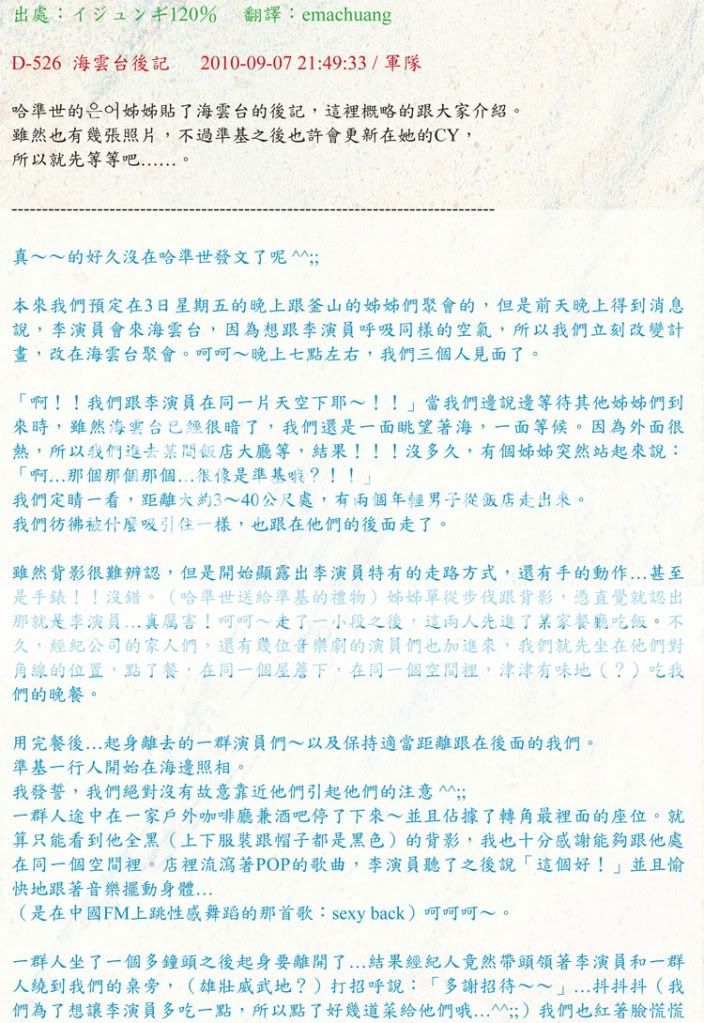 出處：イジュンギ120％　翻譯：emachuang
D-526 海雲台後記　2010-09-07 21:49:33 / 軍隊
哈準世的은어姊姊貼了海雲台的後記，這裡概略的跟大家介紹。
雖然也有幾張照片，不過準基之後也許會更新在她的CY，
所以就先等等吧……。
--------------------------------------------------------------------------------
真～～的好久沒在哈準世發文了呢 ^^;;
本來我們預定在3日星期五的晚上跟釜山的姊姊們聚會的，但是前天晚上得到消息
說，李演員會來海雲台，因為想跟李演員呼吸同樣的空氣，所以我們立刻改變計
畫，改在海雲台聚會。呵呵～晚上七點左右，我們三個人見面了。
「啊！！我們跟李演員在同一片天空下耶～！！」當我們邊說邊等待其他姊姊們到
來時，雖然海雲台已經很暗了，我們還是一面眺望著海，一面等候。因為外面很
熱，所以我們進去某間飯店大廳等，結果！！！沒多久，有個姊姊突然站起來說：
「啊…那個那個那個…很像是準基哦？！！」
我們定睛一看，距離大約3～40公尺處，有兩個年輕男子從飯店走出來。
我們彷彿被什麼吸引住一樣，也跟在他們的後面走了。
雖然背影很難辨認，但是開始顯露出李演員特有的走路方式，還有手的動作…甚至
是手錶！！沒錯。（哈準世送給準基的禮物）姊姊單從步伐跟背影，憑直覺就認出
那就是李演員…真厲害！呵呵～走了一小段之後，這兩人先進了某家餐廳吃飯。不
久，經紀公司的家人們，還有幾位音樂劇的演員們也加進來，我們就先坐在他們對
角線的位置，點了餐，在同一個屋簷下，在同一個空間裡，津津有味地（？）吃我
們的晚餐。
用完餐後…起身離去的一群演員們～以及保持適當距離跟在後面的我們。
準基一行人開始在海邊照相。
我發誓，我們絕對沒有故意靠近他們引起他們的注意 ^^;;
一群人途中在一家戶外咖啡廳兼酒吧停了下來～並且佔據了轉角最裡面的座位。就
算只能看到他全黑（上下服裝跟帽子都是黑色）的背影，我也十分感謝能夠跟他處
在同一個空間裡。店裡流瀉著POP的歌曲，李演員聽了之後說「這個好！」並且愉
快地跟著音樂擺動身體…
（是在中國FM上跳性感舞蹈的那首歌：sexy back）呵呵呵～。
一群人坐了一個多鐘頭之後起身要離開了…結果經紀人竟然帶頭領著李演員和一群
人繞到我們的桌旁，（雄壯威武地？）打招呼說：「多謝招待～～」…抖抖抖（我
們為了想讓李演員多吃一點，所以點了好幾道菜給他們哦…^^;;）我們也紅著臉慌慌